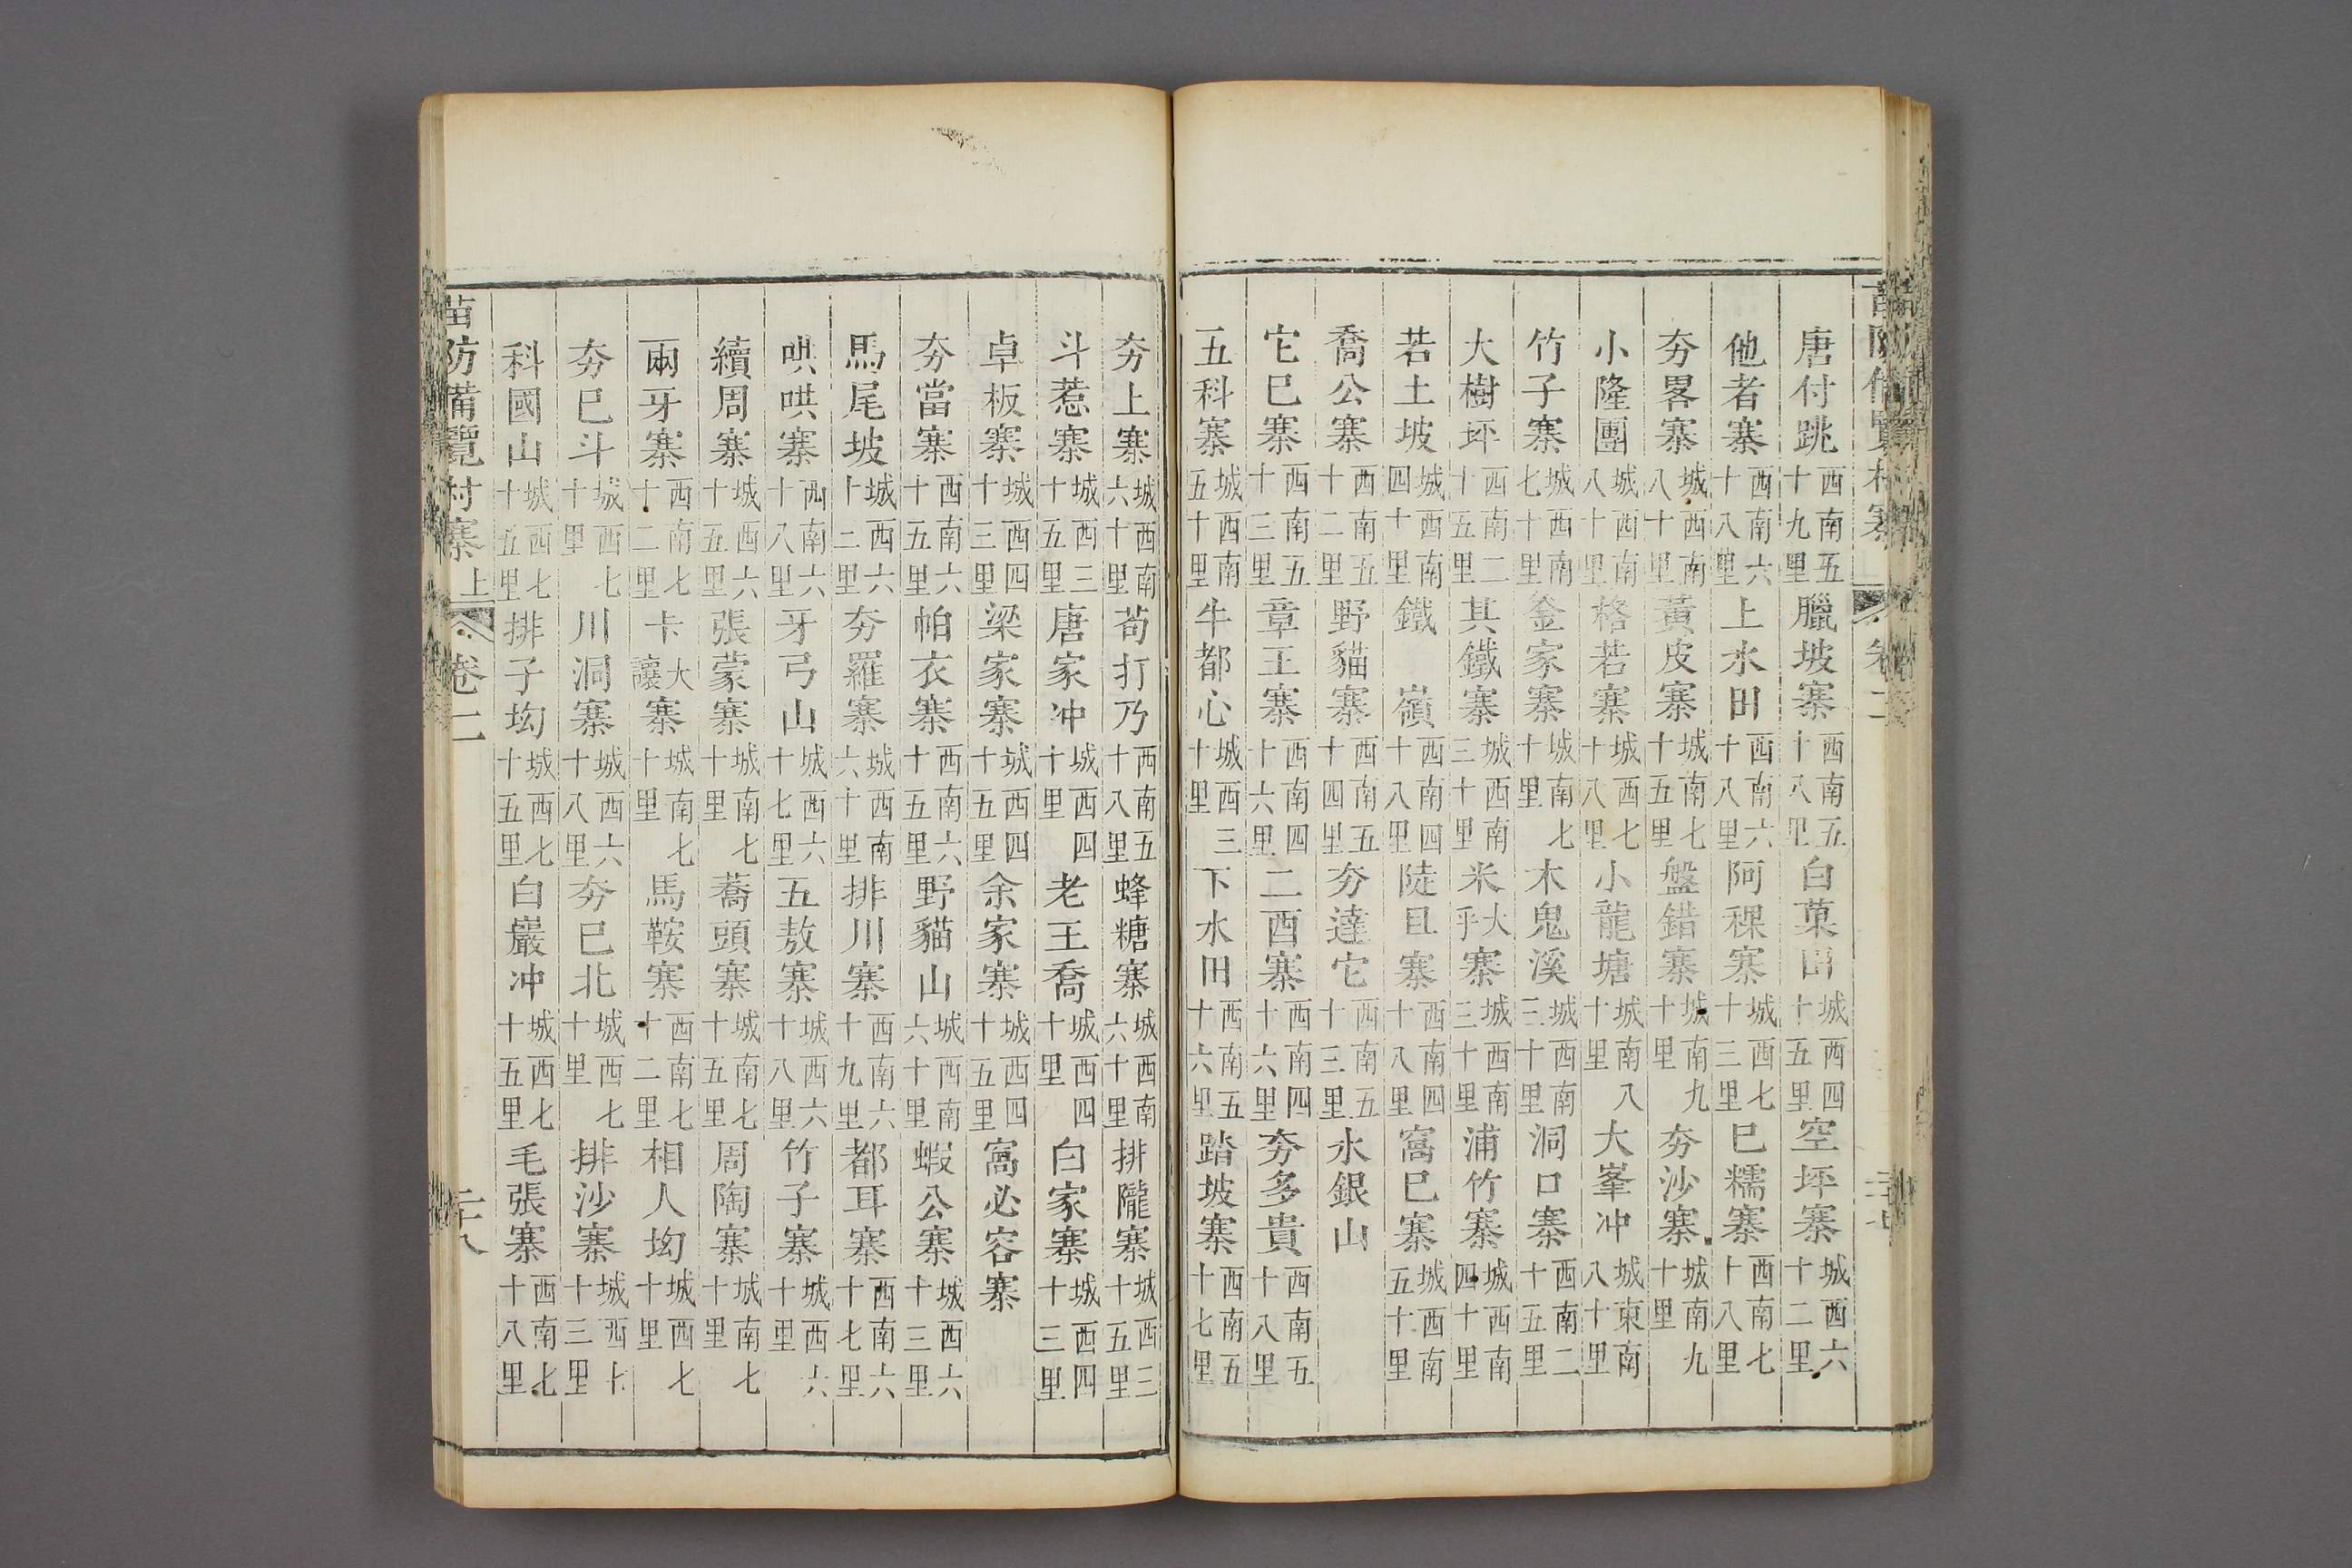 苗防備覽村寨 卷二 二十七
唐付跳西南五十九里臘坡寨西南五十八里白菓田城西四十五里空坪寨城西六十二里
他者寨西南六十八里上水田西南六十八里阿稞寨城西七十三里巳糯寨西南七十八里
夯畧寨城西南八十里黃皮寨城南七十五里盤錯寨城南九十里夯沙寨城南九十里
小隆團城西南八十里格若寨城西七十八里小龍塘城南八十里大峯冲城東南八十里
竹子寨城西南七十里釜家寨城南七十里木鬼溪城西南三十里洞口寨西南二十五里
大樹坪西南二十五里其鐵寨城西南三十里米大乎寨城西南三十里浦竹寨城西南四十里
若土坡城西南四十里鐵嶺西南四十八里陡且寨西南四十八里窩巳寨城西南五十里
喬公寨西南五十二里野貓寨西南五十四里夯達它西南五十三里水銀山
它巳寨西南五十三里章王寨西南四十六里二酉寨西南四十六里夯多貴西南五十八里
五科寨城西南五十里牛都心城西三十里下水田西南五十六里踏坡寨西南五十七里
夯上寨城西南六十里苟打乃西南五十八里蜂糖寨城西南六十里排隴寨城西三十五里
斗惹寨城西三十五里唐家冲城西四十里老王喬城西四十里白家寨城西四十三里
卓板寨城西四十三里梁家寨城西四十五里余家寨城西四十五里窩必容寨
夯當寨西南六十五里帕衣寨西南六十五里野貓山城西南六十里蝦公寨城西六十三里
馬尾坡城西六十二里夯羅寨城西南六十里排川寨西南六十九里都耳寨西南六十七里
哄哄寨西南六十八里牙弓山城西六十七里五敖寨城西六十八里竹子寨城西六十里
續周寨城西六十五里張蒙寨城南七十里蕎頭寨城南七十五里周陶寨城南七十里
兩牙寨西南七十二里卡大讓寨城南七十里馬鞍寨西南七十二里相人坳城西七十里
夯巳斗城西七十里川洞寨城西六十八里夯巳北城西七十里排沙寨城西七十三里
科國山城西七十五里排子坳城西七十五里白巖冲城西七十五里毛張寨西南七十八里
苗防備覽村寨上 卷二 二十八